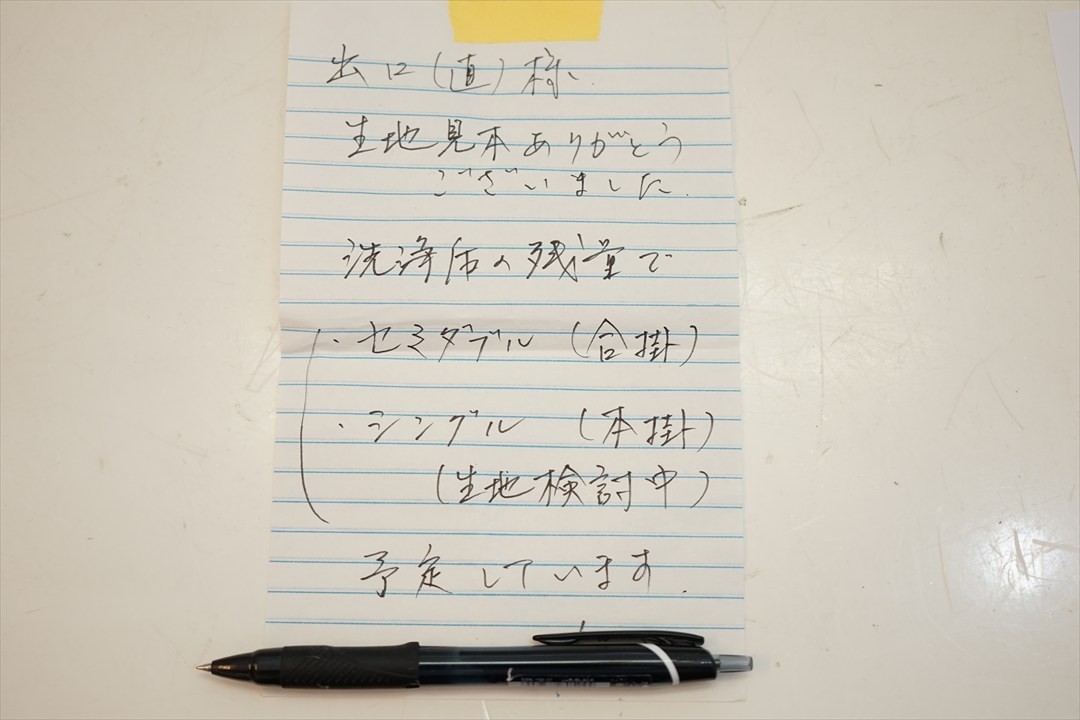 出口(直)様
生地見本ありがとう
ございました.
洗浄后の残量で
・セミダブル (合掛)
・シングル (本掛)
(生地検討中)
予定しています.